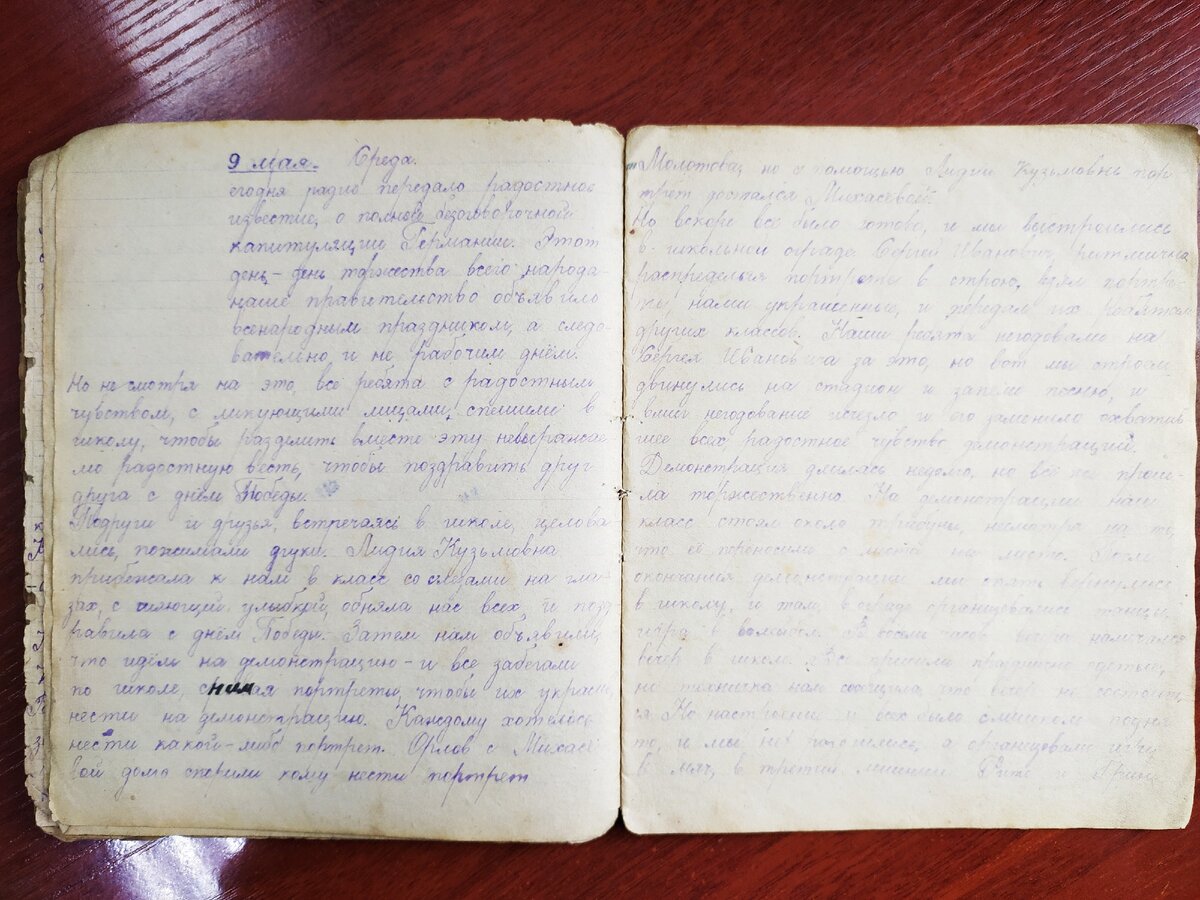 9 мая. Среда.
егодня радио передало радостное
известие, о полной безоговорочной
капитуляции Германии. Этот
день – день торжества всего народа
наше правительство объявило
всенародным праздником, а следо
вательно, и не рабочим днём.
Но не смотря на это, все ребята с радостным
чувством, с ликующими лицами, спешили в
школу, чтобы разделить вместе эту невыразимае
мо радостную весть, чтобы поздравить друг
друга с днём Победы.
Подруги и друзья, встречаясь в школе, целова
лись, пожимали руки. Лидия Кузьмовна
прибежала к нам в класс со слезами на гла
зах, с сияющей улыбкой, обняла нас всех, и позд
равила с днём Победы. Затем нам объявили,
что идём на демонстрацию – и все забегали
по школе, снимая портреты, чтобы их украсив,
нести на демонстрацию. Каждому хотелось
нести какой-либо портрет. Орлов с Михасё
вой дома спорили кому нести портрет
Молотова, но с помощью Лидии Кузьмовны пор
трет достался Михасёвой.
Но вскоре всё было готово, и мы выстроились
в школьной ограде. Сергей Иванович,
распределяя портреты в строю, взял портре
ты, нами украшенные, и передал их ребятам
других классов. Наши ребята негодовали на
Сергея Ивановича за это, но вот мы строем
двинулись на стадион и запели песню, и
вмиг негодование исчезло и его заменило охватив
шее всех, радостное чувство демонстраций.
Демонстрация длилась недолго, но всё же прош
ла торжественно. На демонстрации наш
класс стоял около трибуны, несмотря на то,
что её переносили с места на место. После
окончания демонстрации мы опять вернулись
в школу, и там, в ограде организовались танцы,
игра в волейбол. В восемь часов вечера намечался
вечер в школе. Все пришли празднично одетые,
но техничка нам сообщила, что вечер не состоит
ся. Но настроение у всех было слишком подня
то, и мы не разошлись, а организовали игру
в мяч, в третий лишний